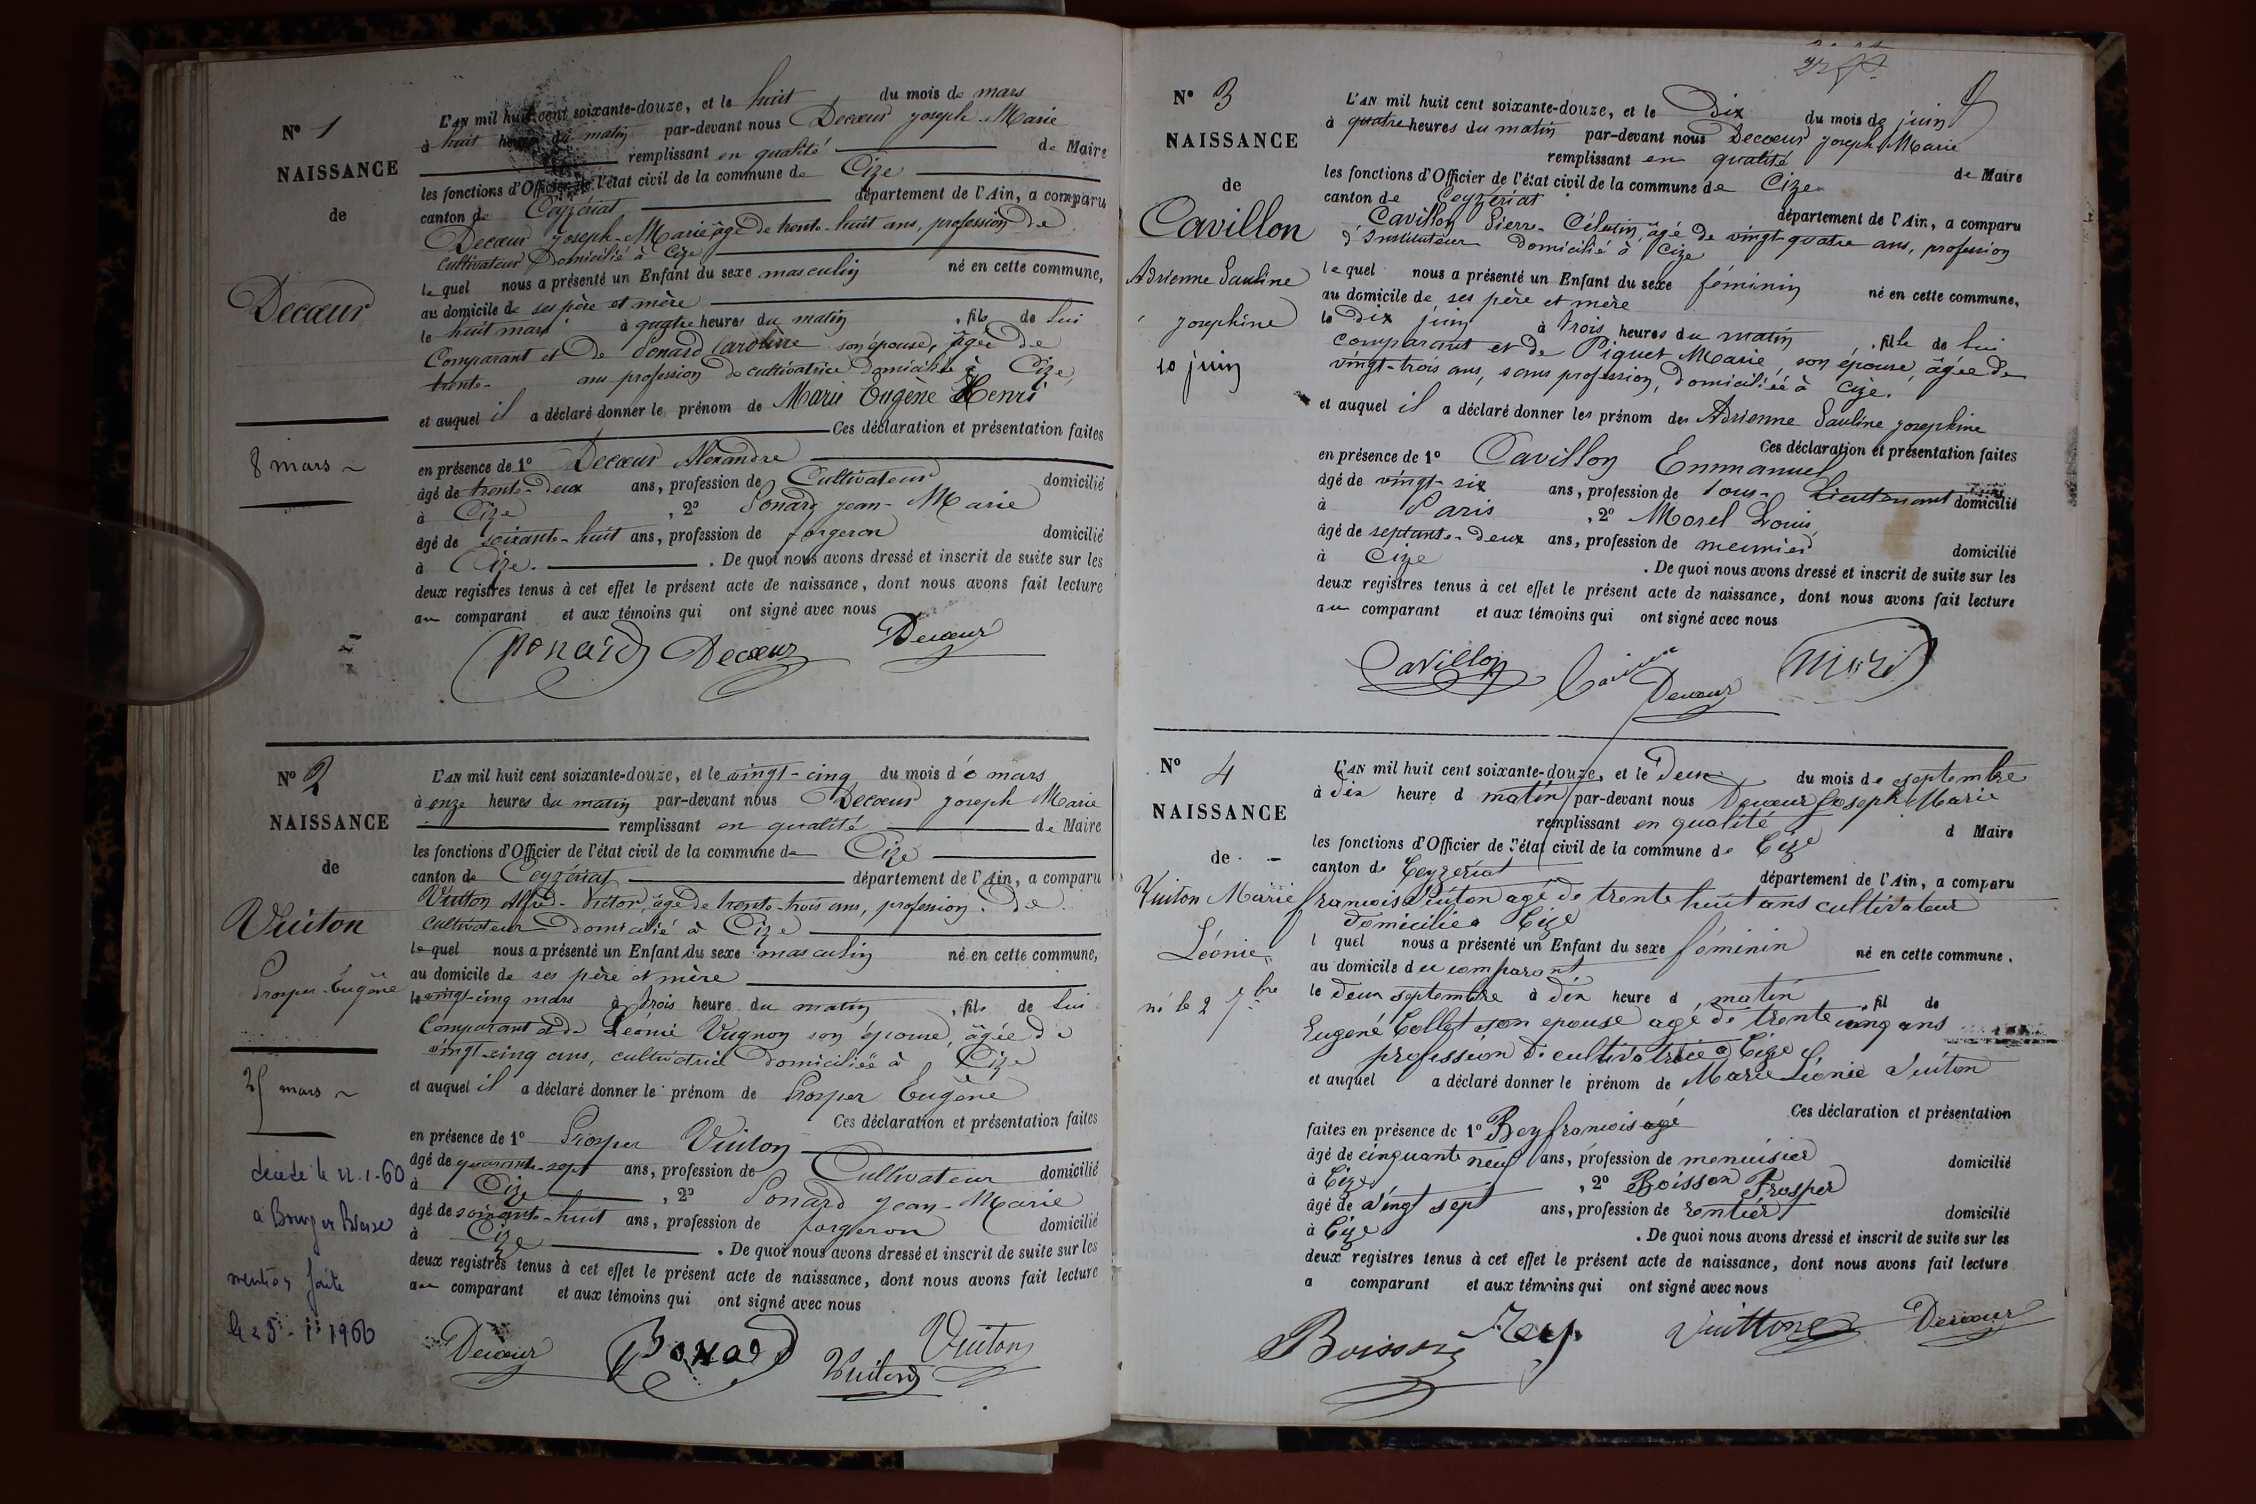 N° 1
NAISSANCE
de
Decœur
8 mars
L'AN mil huit cent soixante-douze, et le huit du mois de mars
à huit heures du matin par-devant nous Decœur Joseph Marie
remplissant en qualité de Maire
les fonctions d'Officier de l'état civil de la commune de Cize
canton de Ceyzériat département de l'Ain, a comparu
Decœur Joseph-Marie âgé de trente-huit ans, profession de
cultivateur domicilié à Cize
lequel nous a présenté un Enfant du sexe masculin né en cette commune,
au domicile de ses père et mère
le huit mars à quatre heures du matin, fils de lui
Comparant et de Ponard Caroline son épouse, âgée de
trente- ans profession de cultivatrice domiciliée à Cize,
et auquel il a déclaré donner le prénom de Marie Eugène Henri
Ces déclaration et présentation faites
en présence de 1° Decœur Alexandre
âgé de trente-deux ans, profession de Cultivateur domicilié
à Cize, 2° Ponard Jean-Marie
âgé de soixante-huit ans, profession de forgeron domicilié
à Cize. De quoi nous avons dressé et inscrit de suite sur les
deux registres tenus à cet effet le présent acte de naissance, dont nous avons fait lecture
au comparant et aux témoins qui ont signé avec nous
Ponard Decœur Decœur
N° 2
NAISSANCE
de
Vuiton
Prosper-Eugène
25 mars
décédé le 22.1.60
a Bourg en Bresse
mention faite
le 25-1-1960
L'AN mil huit cent soixante-douze, et le vingt-cinq du mois de mars
à onze heures du matin par-devant nous Decœur Joseph Marie
remplissant en qualité de Maire
les fonctions d'Officier de l'état civil de la commune de Cize
canton de Ceyzériat département de l'Ain, a comparu
Vuiton Alfred-Victor, âgé de trente-trois ans, profession de
cultivateur domicilié à Cize
lequel nous a présenté un Enfant du sexe masculin né en cette commune,
au domicile de ses père et mère
le vingt-cinq mars à trois heure du matin, fils de lui
Comparant et de Léonie Vugnon son épouse, âgée de
vingt-cinq ans, cultivatrice domiciliée à Cize
et auquel il a déclaré donner le prénom de Prosper Eugène
Ces déclaration et présentation faites
en présence de 1° Prosper Vuiton
âgé de quarante-sept ans, profession de Cultivateur domicilié
à Cize, 2° Ponard Jean-Marie
âgé de soixante-huit ans, profession de forgeron domicilié
à Cize. De quoi nous avons dressé et inscrit de suite sur les
deux registres tenus à cet effet le présent acte de naissance, dont nous avons fait lecture
au comparant et aux témoins qui ont signé avec nous
Decœur Ponard Vuiton Vuiton
N° 3
NAISSANCE
de
Cavillon
Adrienne Pauline
Josephine
10 juin
L'AN mil huit cent soixante-douze, et le Dix du mois de juin
à quatre heures du matin par-devant nous Decœur Joseph Marie
remplissant en qualité de Maire
les fonctions d'Officier de l'état civil de la commune de Cize
canton de Ceyzériat département de l'Ain, a comparu
Cavillon Pierre-Célestin, âgé de vingt-quatre ans, profession
d'Instituteur domicilié à Cize
lequel nous a présenté un Enfant du sexe féminin né en cette commune,
au domicile de ses père et mère
le Dix juin à trois heures du matin, fille de lui
comparant et de Piquet Marie, son épouse, âgée de
vingt-trois ans, sans profession, domiciliée à Cize.
et auquel il a déclaré donner les prénom des Adrienne Pauline Josephine
Ces déclaration et présentation faites
en présence de 1° Cavillon Emmanuel
âgé de vingt-six ans, profession de sous-Lieutenant domicilié
à Paris, 2° Morel Louis,
âgé de septante-deux ans, profession de meunier domicilié
à Cize. De quoi nous avons dressé et inscrit de suite sur les
deux registres tenus à cet effet le présent acte de naissance, dont nous avons fait lecture
au comparant et aux témoins qui ont signé avec nous
Cavillon Decœur
N° 4
NAISSANCE
de
Vuiton Marie
Léonie
né le 2 7bre
L'AN mil huit cent soixante-douze, et le Deux du mois de septembre
à dix heure d matin par-devant nous Decœur Joseph Marie
remplissant en qualité d Maire
les fonctions d'Officier de l'état civil de la commune de Cize
canton de Ceyzeriat département de l'Ain, a comparu
francois Vuiton agé de trente huit ans cultivateur
domicilie a Cize
l quel nous a présenté un Enfant du sexe féminin né en cette commune.
au domicile du comparant
le deux septembre à dix heure d matin, fil de
Eugené Collet son epouse agé de trente cinq ans
profession de cultivatrice a Cize
et auquel a déclaré donner le prénom de Marie Léonie Vuiton
Ces déclaration et présentation
faites en présence de 1° Rey francois agé
âgé de cinquante neuf ans, profession de menuisier domicilié
à Cize, 2° Boisson Prosper
âgé de vingt sept ans, profession de rentier domicilié
à Cize. De quoi nous avons dressé et inscrit de suite sur les
deux registres tenus à cet effet le présent acte de naissance, dont nous avons fait lecture
a comparant et aux témoins qui ont signé avec nous
Boisson Rey Vuitton Decœur